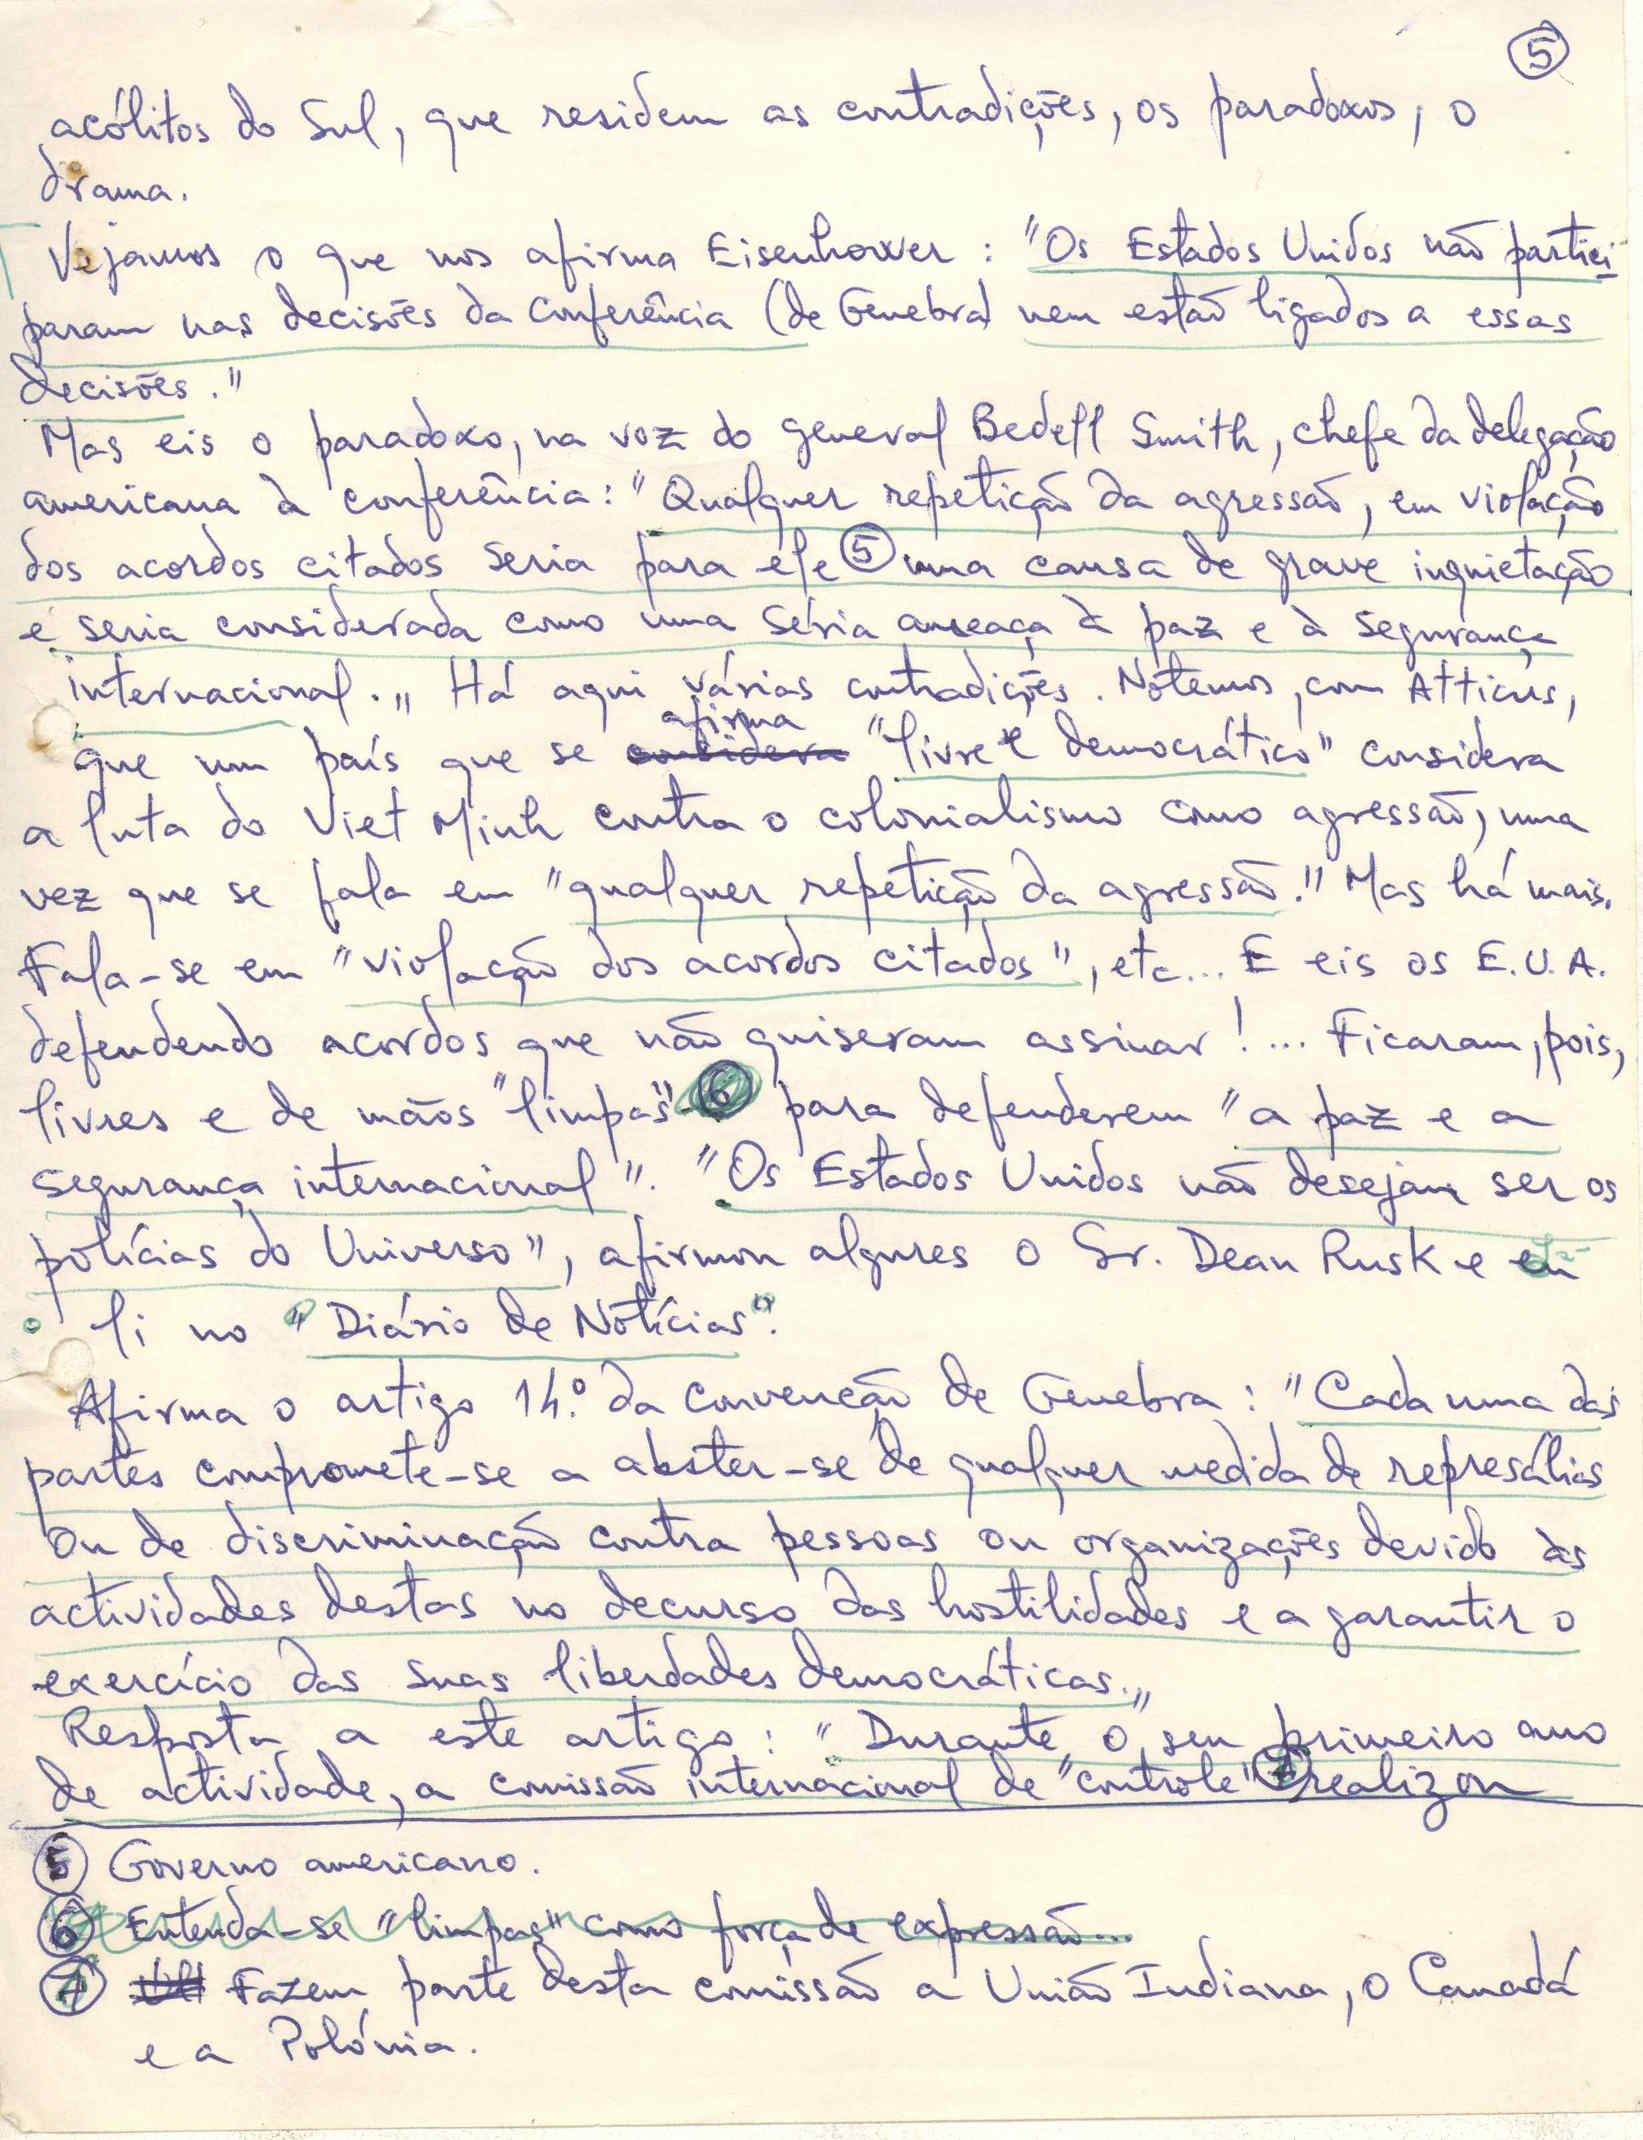 5
acólitos do Sul, que residem as contradições, os paradoxos, o
drama.
Vejamos o que nos afirma Eisenhower : "Os Estados Unidos não partici-
param nas decisões da Conferência (de Genebra) nem estão ligados a essas
decisões."
Mas eis o paradoxo, na voz do general Bedell Smith, chefe da delegação
americana à conferência: "Qualquer repetição da agressão, em violação
dos acordos citados seria para ele 5 uma causa de grave inquietação
e seria considerada como uma séria ameaça à paz e à segurança
internacional.„ Há aqui várias contradições. Notemos, com Atticus,
que um país que se considera afirma "livre e democrático" considera
a luta do Viet Minh contra o colonialismo como agressão, uma
vez que se fala em "qualquer repetição da agressão." Mas há mais.
Fala-se em "violação dos acordos citados", etc... E eis os E.U.A.
defendendo acordos que não quiseram assinar!... Ficaram, pois,
livres e de mãos "limpas" 6 para defenderem "a paz e a
segurança internacional". "Os Estados Unidos não desejam ser os
polícias do Universo", afirmou algures o Sr. Dean Rusk e eu
li no "Diário de Notícias".
Afirma o artigo 14.º da Convenção de Genebra : "Cada uma das
partes compromete-se a abster-se de qualquer medida de represálias
ou de discriminação contra pessoas ou organizações devido às
actividades destas no decurso das hostilidades e a garantir o
exercício das suas liberdades democráticas.„
Resposta a este artigo : "Durante o seu primeiro ano
de actividade, a comissão internacional de "controle" 7 realizou
5 Governo americano.
6 Entenda-se "limpas" como força de expressão...
7 Fazem parte desta comissão a União Indiana, o Canadá
e a Polónia.